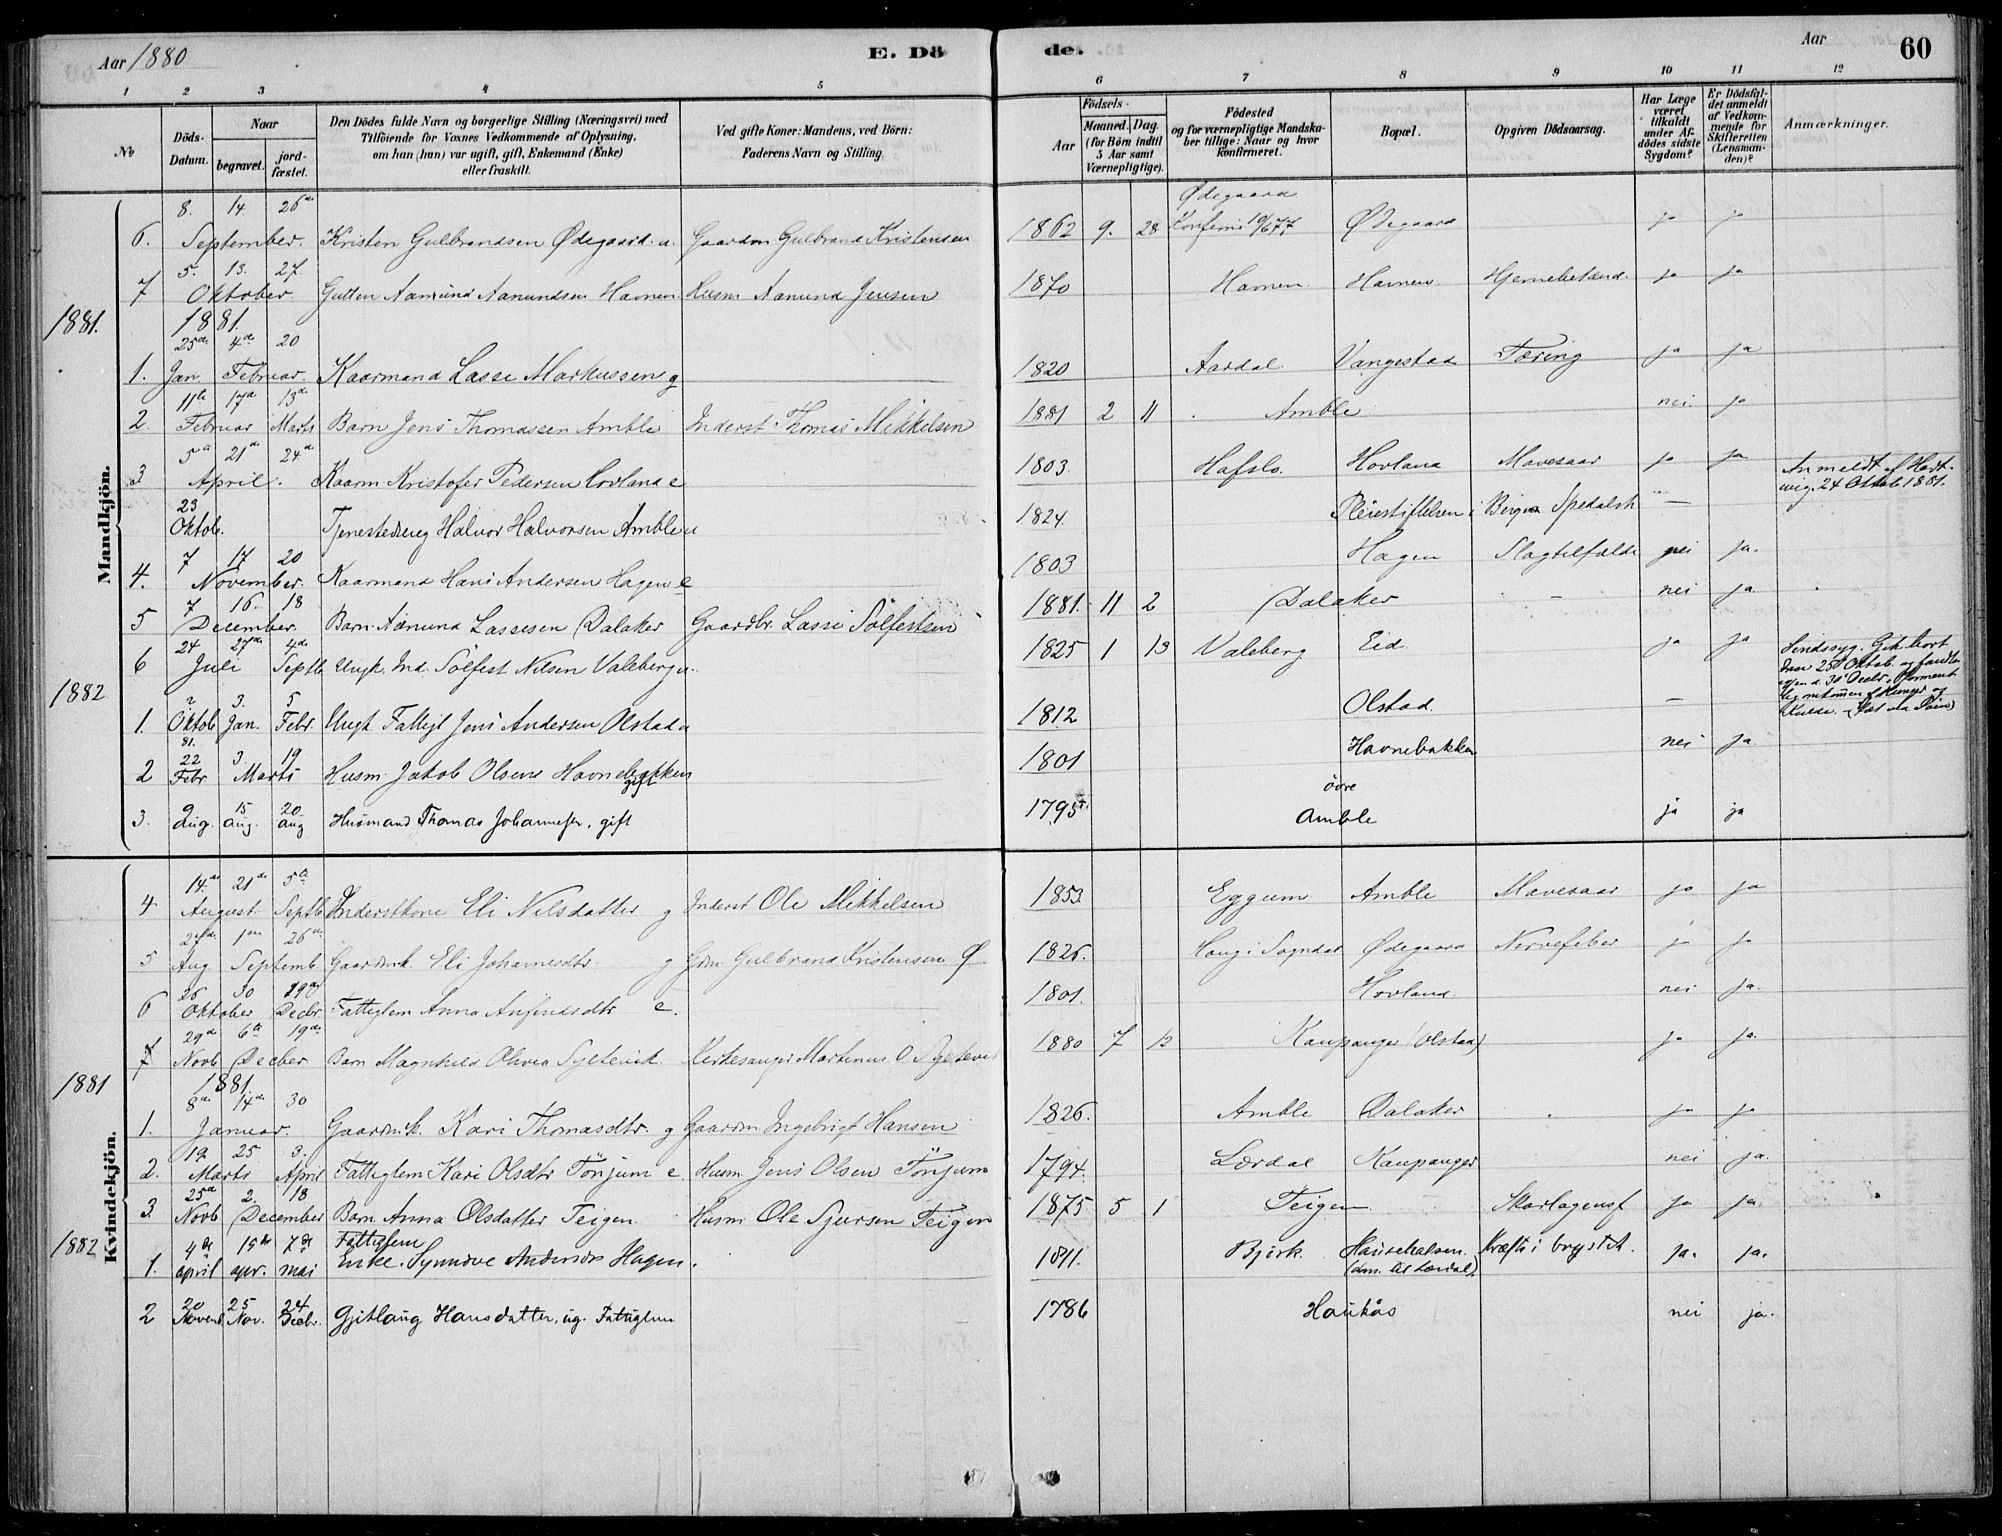 Aar 1880
E. Dö
de.
Aar
60
1 2 3 4 5 6 7 8 9 10 11 12
No
Döds-Datum.
Naar
begravet.
jord-fæstet.
Den Dödes fulde Navn og borgerlige Stilling (Næringsvei) med
Tilföiende for Voxnes Vedkommende af Oplysning,
om han (hun) var ugift, gift, Enkemand (Enke)
eller fraskilt.
Ved gifte Koner: Mandens, ved Börn:
Faderens Navn og Stilling.
Födsels-
Aar
Maaned. Dag.
(for Börn indtil
5 Aar samt
Værnepligtige).
Födested
og for værnepligtige Mandska-
ber tillige: Naar og hvor
konfirmeret.
Bopæl.
Opgiven Dödsaarsag.
Har Læge
været
tilkaldt
under Af-
dödes sidste
Sygdom?
Er Dödsfal-
det anmeldt
af Vedkom-
mende for
Skifteretten
(Lensman-
den)?
Anmærkninger.
Mandkjön.
8. 14. 26de Ødegaard
6. September. Kristen Gulbrandsen Ødegaard. u. Gaardm Gulbrand Kristensen 1862 9. 28 Konfirm 10/6 77 Ødegaard ja ja
5. 13. 27.
7 Oktober. Gutten Aamund Aamundsen Havnen. Husm Aamund Jensen 1870 Havnen. Havnen Hjernebetænd. ja ja
1881. 1881.
25de 4de 20
1. Jan. Februar. Kaarmand Lasse Markussen g 1820 Aardal. Vangestad Tæring ja ja
11te 17de 13de
2. Februar Marts Barn Jens Thomassen Amble Inderst Thomas Mikkelsen 1881 2 11 Amble nei. ja
5te 21de 24de
3 April. Kaarm Kristofer Pedersen Hovland e 1803. Hafslo. Hovland Mavesaar ja ja Anmeldt af Hart-
vig. 24 Oktob 1881.
23
Oktob. Tjenestedreng Halvor Halvorsen Amble u 1824. Pleiestiftelsen i Bergen Spedalsk —
7 17 20
4. November. Kaarmand Hans Andersen Hagen e 1803 Hagen Slagtilfælde nei ja.
7 16. 18
5 December. Barn Aamund Lassesen Dalaker Gaardbr. Lasse Sölfestsen 1881. 11 2 Dalaker — nei ja
24 27de 4de
6 Juli Septb Ungk. Ind. Sölfest Nilsen Valeberg u. 1825 1 13 Valeberg Eid. ja ja Sindssyg. Gik bort
1882
2 3. 5
1. Oktob 81. Jan. Febr. Ungk. Fattigl Jens Andersen Olstad u 1812 Olstad. — —
22 3. 19
2 Febr Marts Husm. Jakob Olsen Havnebakken gift 1801 Havnebakken nei ja.
9 15 20 övre
3. Aug. Aug. Aug Husmand Thomas Johannesen, gift 1795. Amble ja ja
Kvindekjön.
14de 21de 5te
4 August Septb Inderstkone Eli Nilsdatter g Inderst Ole Mikkelsen 1853. Eggum Amble Mavesaar ja ja
27de 1ste 26de
5 Aug Septemb. Gaardmk. Eli Johannesdtr. g Gdm. Gulbrand Kristensen Ø 1826. Haug i Sogndal Ødegaard Nervefeber ja ja
26 30 19de
6 Oktober Decbr. Fattiglem Anna Anfindsdtr e. 1801. Hovland. nei ja.
29de 6te 19de
7 Novb Decber Barn Magnhild Olivia Syltevik Kirkesanger Martinus O Syltevik 1880 7 12 Kaupanger (Olstad) ja ja.
1881 1881.
8de 14de 30
1. Januar. Gaardmk. Kari Thomasdtr. g Gaardm. Ingebrigt Hansen 1826. Amble Dalaker ja ja
19. 25 3.
2. Marts April Fattiglem Kari Olsdtr Tönjum e. Husm Jens Olsen Tönjum 1794. Lærdal Kaupanger nei ja.
25de 2. 18
3. Novb December Barn Anna Olsdatter Teigen Husm Ole Sjursen Teigen 1875 5 1 Teigen Skarlagensf ja ja.
1882
4de 15de 7de Fattiglem
1. april apr. mai Enke. Synnöve Andersdr Hagen. 1811. Bjørk. Haukehalsen. Kræft i brystet. ja. ja.
20 25 24
2 Novemb. Nov. Decbr. Gjitlaug Hansdatter, ug. Fattiglem 1786 Haukås nei ja.